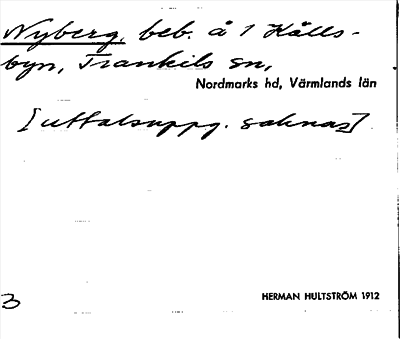 Nyberg, beb. å 1 Hålls-
byn, Trankils sn,
Nordmarks hd, Värmlands län
[uttalsuppg. saknas]
HERMAN HULTSTRÖM 1912
3